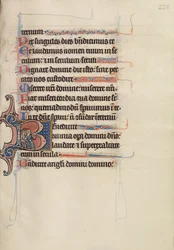 eternum.
Per singulos dies benedicimus te
Et laudamus nomen tuum in se
culum: et in seculum seculi
Dignare domine die isto: sine pec
cato nos custodire
Miserere nri domine: miserere nri
Fiat misericordia tua domine su
nos: quemadmodum sperauimus i te
In te dñe spaui: non cofundar in eternu
Benedicite
omnia opa domini dño:
laudate et superexaltate
eum in secula
Benedicite angeli domini domino: